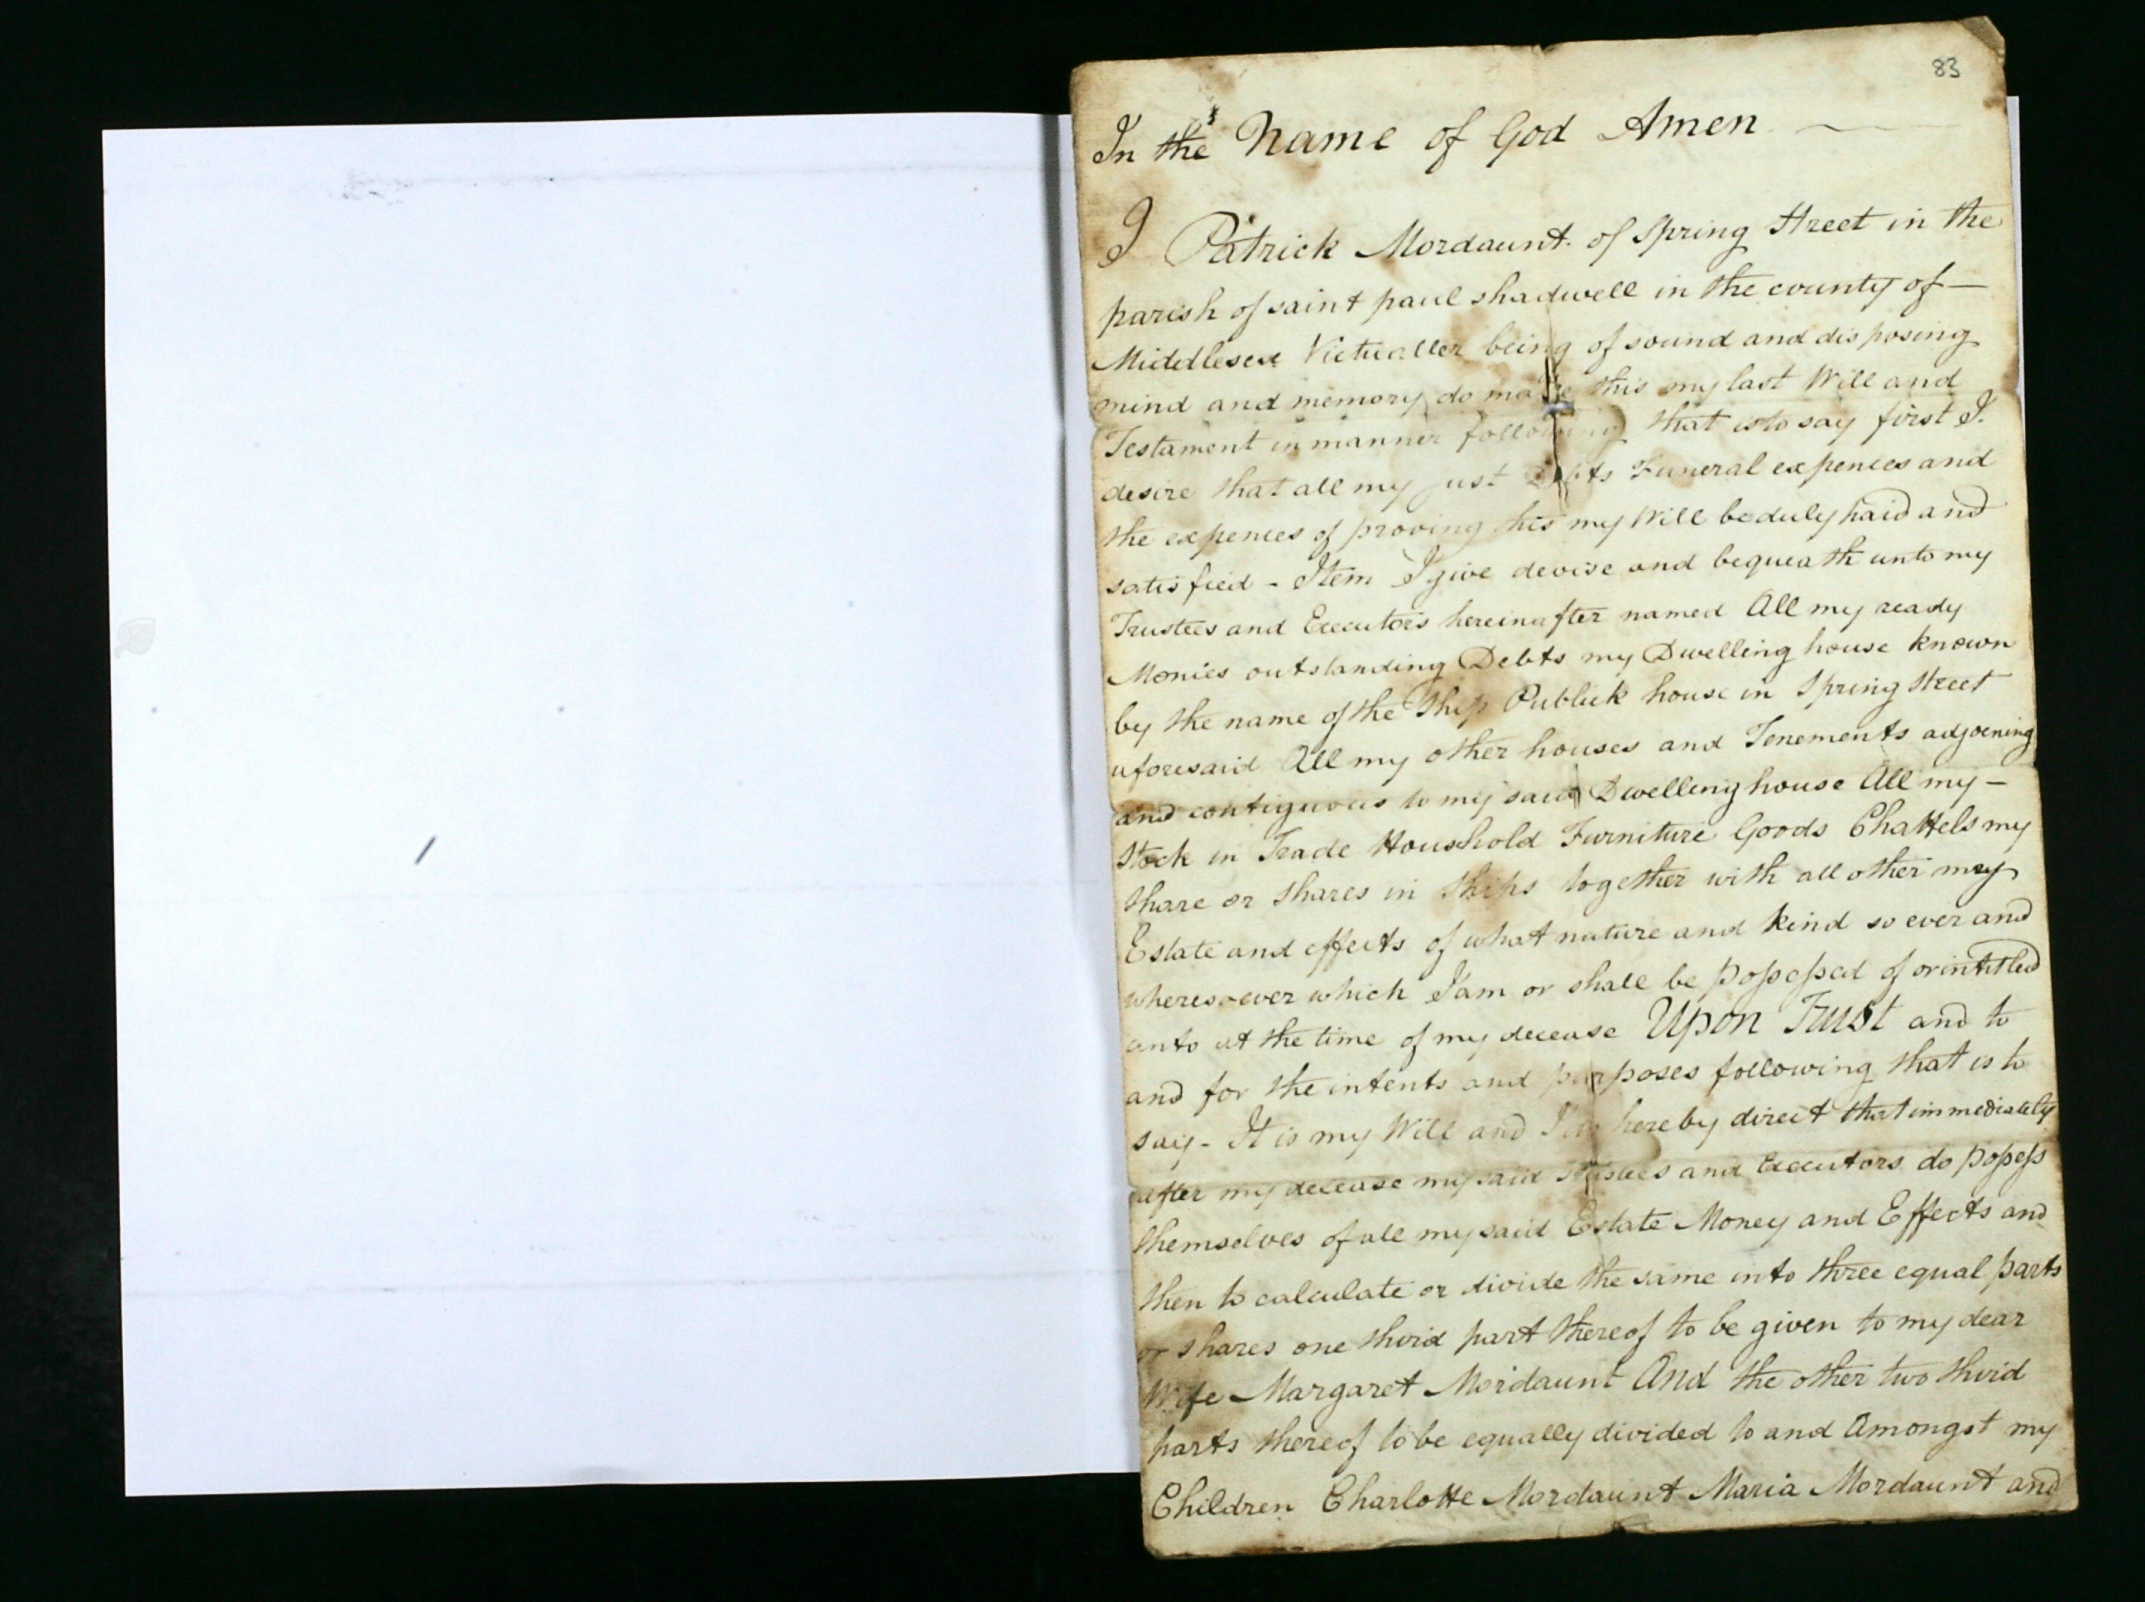 83
In the Name of God Amen
I Patrick Mordaunt of Spring Street in the
parish of saint paul shadwell in the county of —
Middlesex Victualler being of sound and disposing
mind and memory do make this my last Will and
Testament in manner following that is to say first I
desire that all my just Debts Funeral expences and
the expences of proving this my Will be duly paid and
satisfied - Item I give devise and bequeath unto my
Trustees and Executors hereinafter named All my ready
Monies outstanding Debts my Dwelling house known
by the name of the Ship Publick house in Spring Street
aforesaid All my other houses and Tenements adjoening
and contiguous to my said Dwelling house All my —
Stock in Trade Household Furniture Goods Chattels my
Share or Shares in Ships together with all other my
Estate and effects of what nature and kind so ever and
wheresoever which I am or shall be possessed of or intitled
unto at the time of my decease Upon Trust and to
and for the intents and purposes following that is to
say - It is my Will and I do hereby direct that immediately
after my decease my said Trustees and Executors do possess
themselves of all my said Estate Money and Effects and
then to calculate or divide the same into three equal parts
or shares one third part thereof to be given to my dear
Wife Margaret Mordaunt And the other two third
parts thereof to be equally divided to and Amongst my
Children Charlotte Mordaunt Maria Mordaunt and